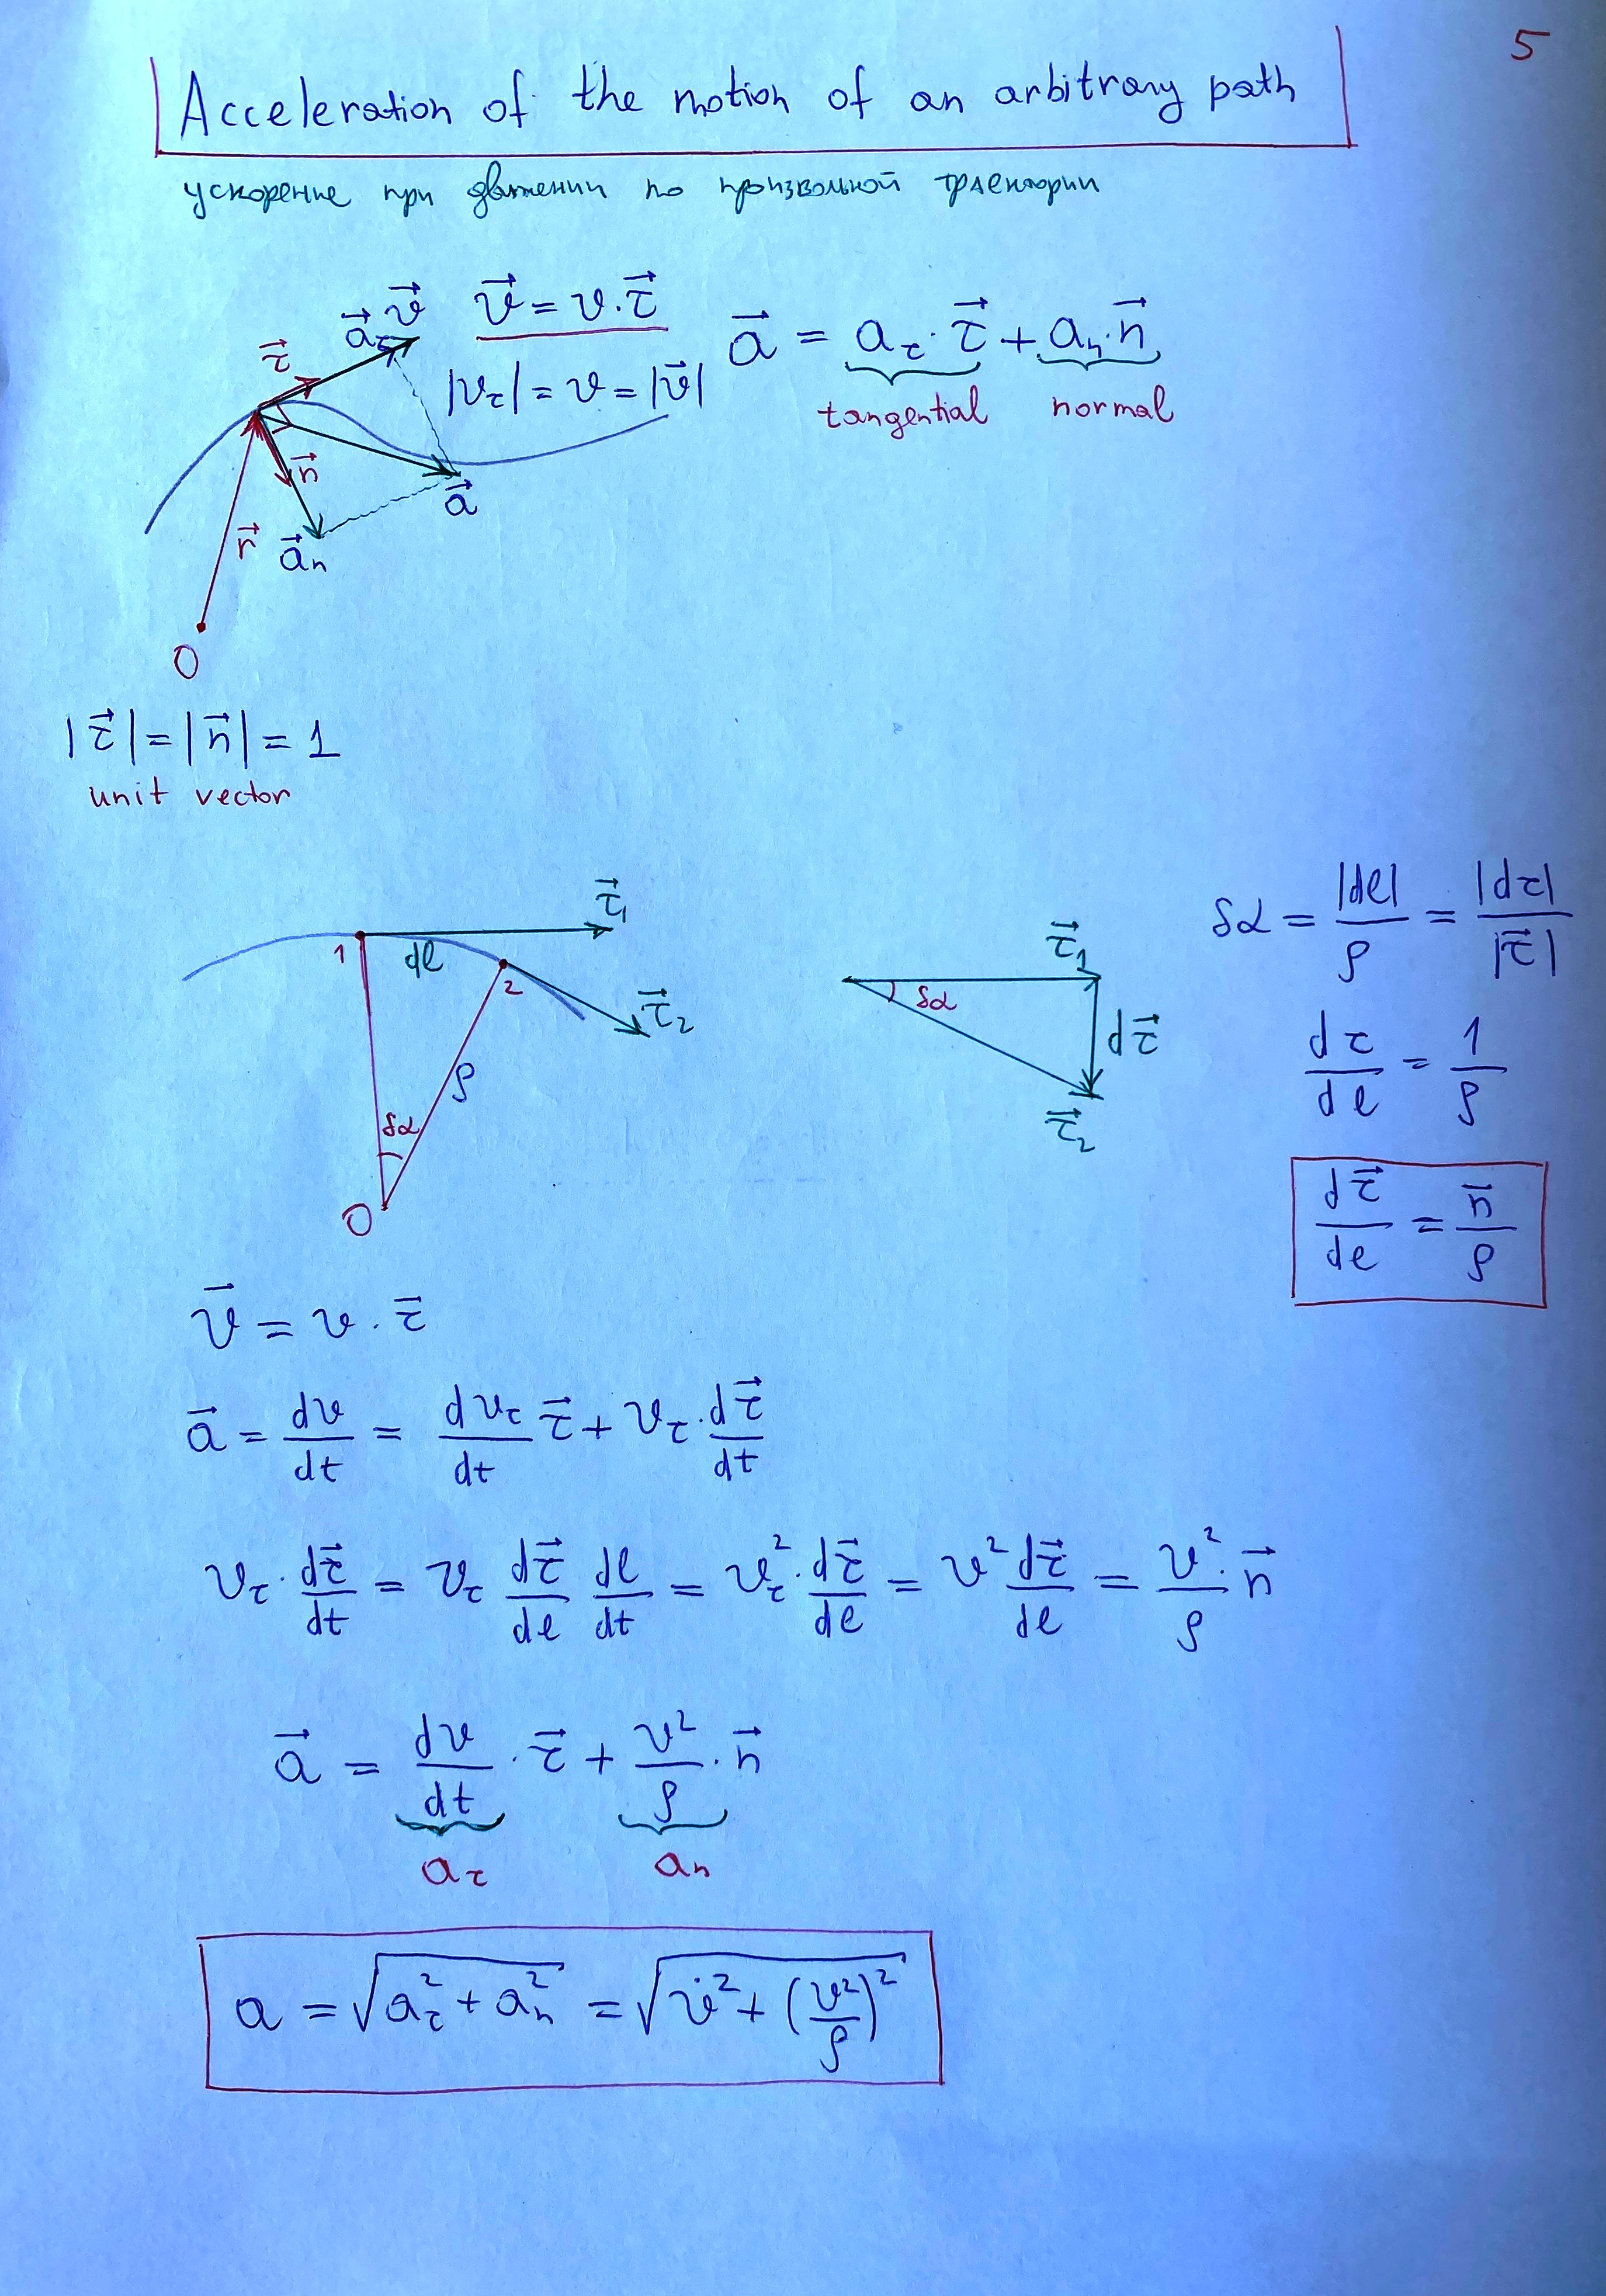 5
Acceleration of the motion of an arbitrary path
ускорение при движении по произвольной траектории
τ⃗ a⃗τ v⃗
O r⃗ n⃗ a⃗n a⃗
v⃗ = v · τ⃗
|vτ| = v = |v⃗|
a⃗ = aτ · τ⃗ + an · n⃗
tangential normal
|τ⃗| = |n⃗| = 1
unit vector
1 dl τ⃗1
O δα ρ 2 τ⃗2
δα τ⃗1
τ⃗2 dτ⃗
δα = |dl|/ρ = |dτ|/|τ⃗|
dτ/dl = 1/ρ
dτ⃗/dl = n⃗/ρ
v⃗ = v · τ⃗
a⃗ = dv⃗/dt = dvτ/dt τ⃗ + vτ · dτ⃗/dt
vτ · dτ⃗/dt = vτ dτ⃗/dl dl/dt = vτ² · dτ⃗/dl = v² dτ⃗/dl = v²/ρ · n⃗
a⃗ = dv/dt · τ⃗ + v²/ρ · n⃗
aτ an
a = √(aτ² + an²) = √(v̇² + (v²/ρ)²)